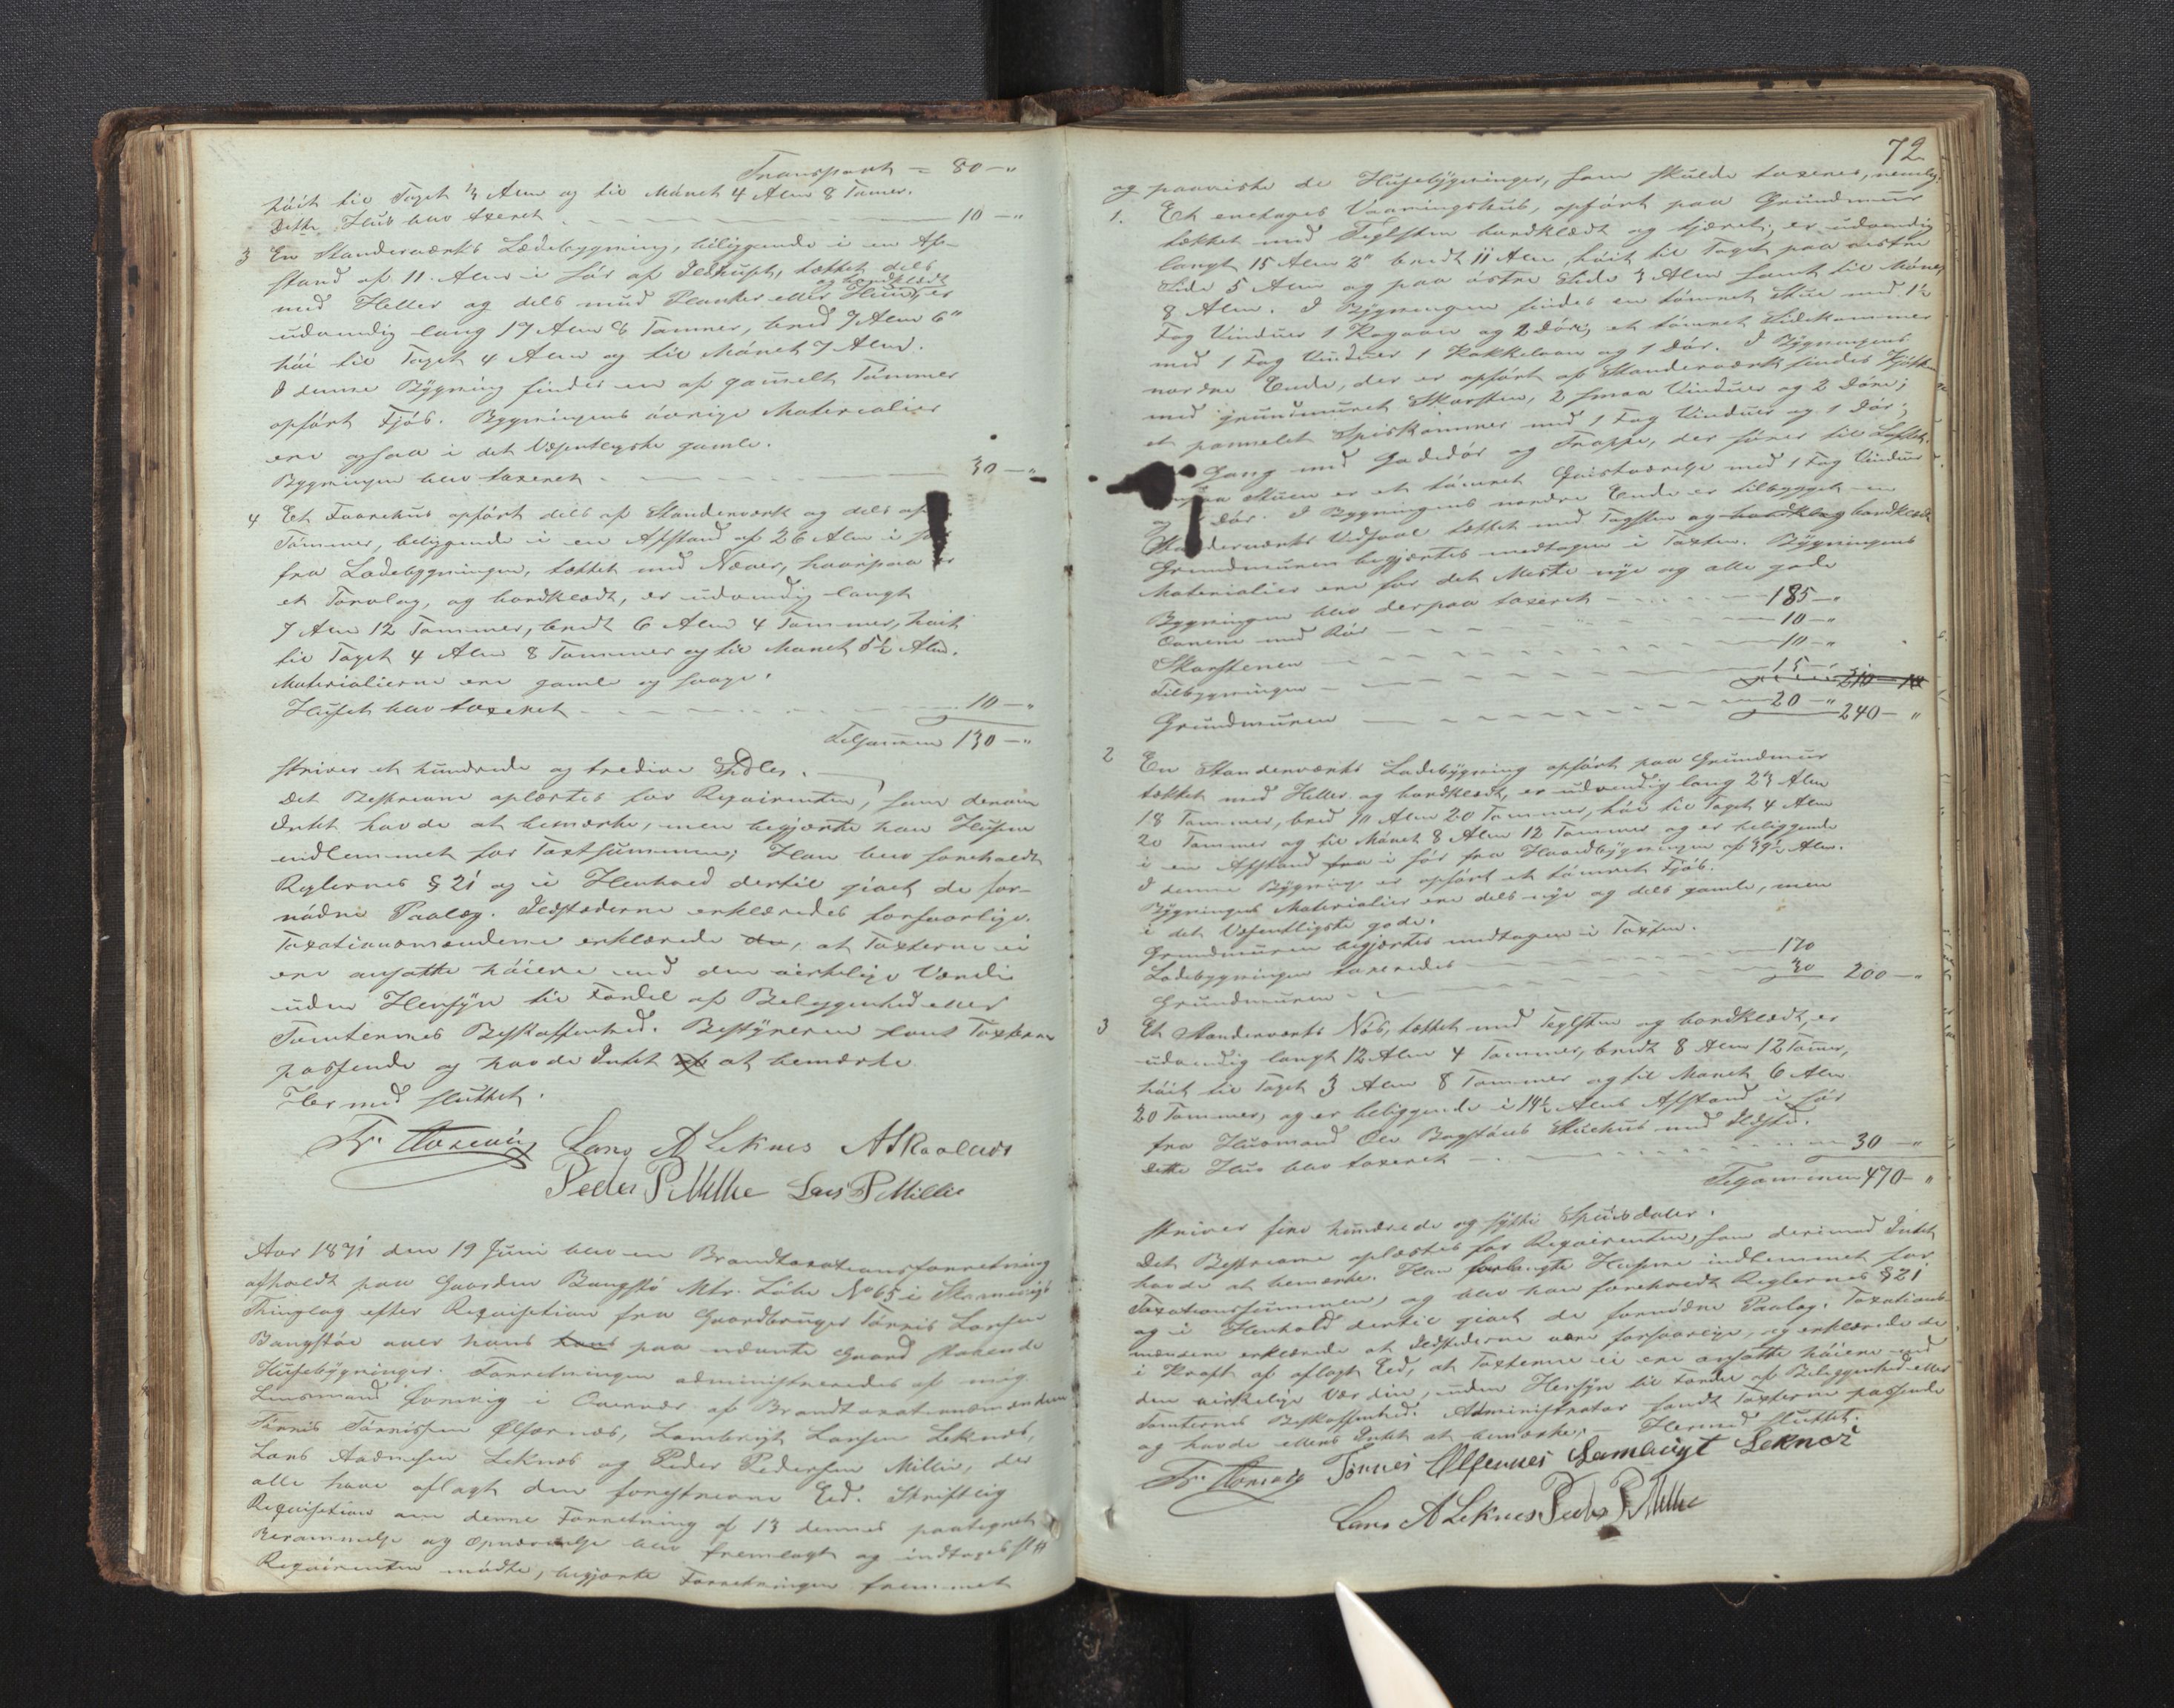 Transport = 80 — "
høit til Taget 3 Alen og til Mønet 4 Alen 8 Tomer.
Dette Huus blev taxeret — 10 — "
3 En Standerværks Ladebygning, beliggende i en Af-
stand af 11 Alen i Sør af Ildhuset, tækket dels
med Heller og dels med Planker eller Huun, og bordklædt er
udvendig lang 17 Alen 6 Tommer, bred 7 Alen 6"
høi til Taget 4 Alen og til Mønet 7 Alen.
I denne Bygning findes en af gammelt Tømmer
opført Fjøs. Bygningens øvrige Materialier
ere ogsaa i det Væsentligste gamle.
Bygningen blev taxeret — 30 — "
4 Et Faarehus opført dels af Standerværk og dels af
Tømmer, beliggende i en Afstand af 26 Alen i
fra Ladebygningen, tækket med Næver, hvorpaa er
et Torvlag, og bordklædt, er udvendig langt
7 Alen 12 Tommer, bredt 6 Alen 4 Tommer, høit
til Taget 4 Alen 8 Tommer og til Mønet 5½ Alen.
Materialierne ere gamle og svage.
Huset blev taxeret — 10 — "
Tilsammen 130 — "
skriver et hundrede og tredive Spdlr.
Det Beskrevne oplæstes for Reqvirenten, som derom
Intet havde at bemærke, men begjærte han Husene
indlemmet for Taxtsummen; Han blev foreholdt
Reglernes § 21 og i Henhold dertil givet de for-
nødne Paalæg. Ildstæderne erklæredes forsvarlige.
Taxationsmændene erklærede de, at Taxterne ei
ere ansatte høiere end den virkelige Værdi
uden Hensyn til Fordel af Beliggenhed eller
Tomternes Beskaffenhed. Bestyreren fandt Taxterne
passende og havde Intet at at bemærke
Hermed sluttet.
Lars A Leknes A Skaalevis
Peder P Mille Lars P Millie
Aar 1871 den 19 Juni blev en Brandtaxationsforretning
afholdt paa Gaarden Bangstø Mtr. Løbe No 65 i
Thinglag efter Reqvisition fra Gaardbruger Tønnis Larsen
Bangstøe over hans hans paa nævnte Gaard staaende
Husebygninger. Forretningen administreredes af mig
Lensmand i af Brandtaxationsmændene
Tønnis Tønnissen Ølfernæs, Lambrigt Larsen Leknæs,
Lars Leknæs og Peder Pedersen Millie, der
alle have aflagt den foreskrevne Eed. Skriftlig
Reqvisition om denne Forretning af 13 dennes paategnet
Berammelse og Opnævnelse blev fremlagt og indtages
Reqvirenten mødte, begjærte Forretningen fremmet
72
og paaviste de Husebygninger, som skulde taxeres, nemlig:
1. Et enetages Vaaningshus, opført paa Grundmur
tækket med Teglsten bordklædt og tjæret, er udvendig
langt 15 Alen 2" bredt 11 Alen, høit til Taget paa vestre
Side 5 Alen og paa østre Side 3 Alen samt til Mønet
8 Alen. I Bygningen findes en tømret Stue med 1½
Fag Vinduer 1 Kogovn og 2 Døre; et tømret Sidekammer
med 1 Fag Vinduer 1 Kakkelovn og 1 Dør. I Bygningens
nordre Ende, der er opført af Standerværk findes Kjøkken
med grundmuret Skorsten, 2 smaa Vinduer og 2 Døre;
et pannelet Spiskammer med 1 Fag Vinduer og 1 Dør;
Gang med Gadedør og Trappe, der fører til Loftet.
Stuen er et tømret Qvistværelse med 1 Fag Vinduer
og Dør. I Bygningens nordre Ende er tilbygget en
Standerværks Vedsval tækket med Tagsten og bordklædt
Grundmuren begjærtes medtagen i Taxten. Bygningens
Materialier ere for det Meste nye og alle gode
Bygningen blev derpaa taxeret — 185 — "
Ovnene med Rør — 10 — "
Skorstenen — 10 — "
Tilbygningen — 15 — "
Grundmuren — 20 — " 240 — "
2 En Standerværks Ladebygning opført paa Grundmur
tækket med Heller og bordklædt, er udvendig lang 23 Alen
18 Tommer, bred 10 Alen 20 Tommer, høi til Taget 4 Alen
20 Tommer og til Mønet 8 Alen 12 Tommer og er beliggende
i en Afstand fra i Sør fra Hovedbygningen af 39½ Alen.
I denne Bygning er opført et tømret Fjøs.
Bygningens Materialier ere dels nye og dels gamle, men
i det Væsentligste gode.
Grundmuren begjærtes medtagen i Taxten.
Ladebygningen taxeredes — 170
Grundmuren — 30 200 — "
3 Et Standerværks Nøs, tækket med Teglsten og bordklædt, er
udvendig langt 12 Alen 4 Tommer, bredt 8 Alen 12 Tomer,
høit til Taget 3 Alen 8 Tommer og til Mønet 6 Alen
20 Tommer, og er beliggende i 14½ Alens Afstand i Sør
fra Husmand Ole Stuehus med Ildsted.
Dette Hus blev taxeret — 30 — "
Tilsammen 470 — "
skriver fire hundrede og sytti Speciesdaler.
Det Beskrevne oplæstes for Reqvirenten, som derimod Intet
havde at bemærke. Han forlangte Husene indlemmet for
Taxationssummen, og blev han foreholdt Reglernes § 21
og i Henhold dertil givet de fornødne Paalæg. Taxations-
mændene erklærede at Ildstederne vare forsvarlige, og erklærede de
i Kraft af aflagt Eed, at Taxterne ei ere ansatte høiere end
den virkelige Værdien, uden Hensyn til Fordel af Beliggenhed eller
Tomternes Beskaffenhed. Administrator fandt Taxterne passende
og havde ellers Intet at bemærke. — Hermed sluttet.
Tønnes Ølfernes Lambrigt Leknes
Lars A Leknes Peder P Mille